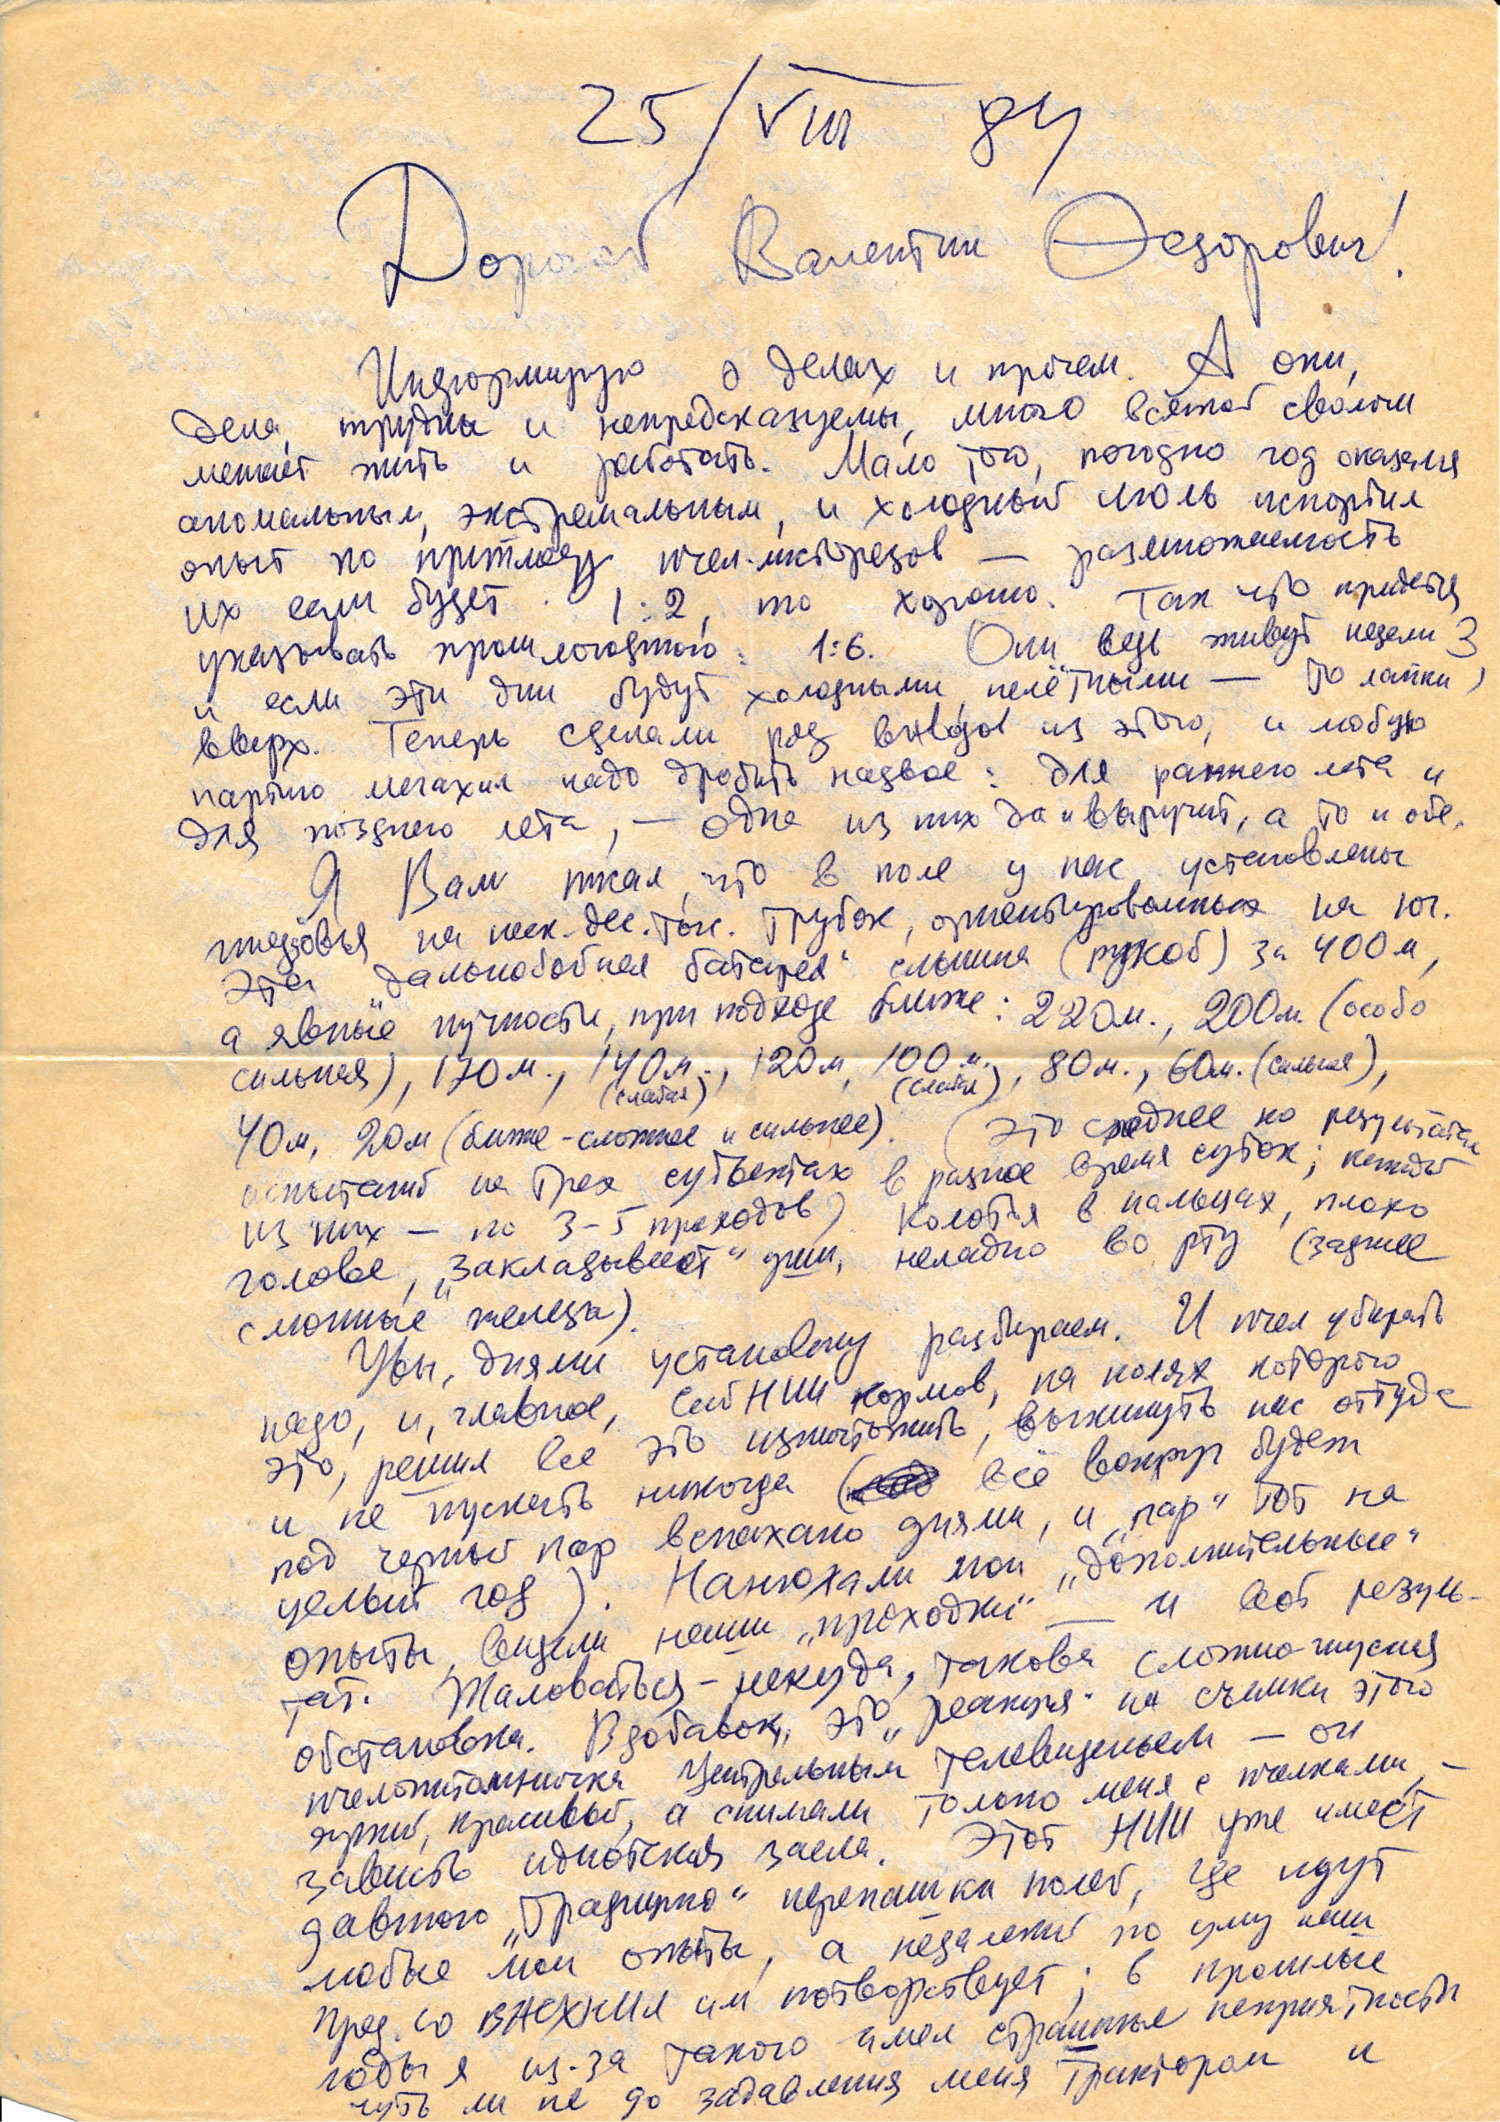 25/VIII 84
Дорогой Валентин Федорович!
Информирую о делах и прочем. А они,
дела, трудны и непредсказуемы, много всякой сволочи
мешает жить и работать. Мало того, погодно год оказался
аномальным, экстремальным, и холодный июль испортил
опыт по приплоду пчел-листорезов — размножаемость
их если будет 1:2, то хорошо. Так что придется
указывать прошлогоднюю: 1:6. Они ведь живут недели 3,
и если эти дни будут холодными нелётными — то лапки
вверх. Теперь сделали ряд выводов из этого, и любую
партию мегахил надо дробить надвое: для раннего лета и
для позднего лета, — одна из них да и выручит, а то и обе.
Я Вам писал, что в поле у нас установлены
гнездовья на неск. дес. тыс. трубок, ориентированных на юг.
Эта „дальнобойная батарея" слышна (рукой) за 400 м,
а явные пучности, при подходе ближе: 220 м., 200 м. (особо
сильная), 170 м., 140 м. (слабая), 120 м, 100 м. (слабая), 80 м., 60 м. (сильная),
40 м, 20 м (ближе - сложнее и сильнее). (Это среднее по результатам
испытаний на трех субъектах в разное время суток; каждый
из них — по 3-5 проходов). Колотья в пальцах, плохо
голове, „закладывает" уши, неладно во рту (задние
слюнные железы).
Увы, днями установку разбираем. И пчел убирать
надо, и, главное, СибНИИ кормов, на полях которого
это, решил все это уничтожить, выкинуть нас оттуда
и не пускать никогда (всё вокруг будет
под черный пар вспахано днями, и „пар" тот на
целый год). Нанюхали мои „дополнительные"
опыты, видели наши „проходки" — и вот резуль-
тат. Жаловаться - некуда, такова сложно-гнусная
обстановка. Вдобавок, это „реакция" на съемки этого
пчелопитомничка Центральным телевиденьем — он
яркий, красивый, а снимали только меня с пчелками, —
зависть идиотская заела. Этот НИИ уже имеет
давнюю „традицию" перепашки полей, где идут
любые мои опыты, а недалекий по уму наш
През. СО ВАСХНИЛ им потворствует; в прошлые
годы я из-за такого имел страшные неприятности
чуть ли не до задавления меня трактором и